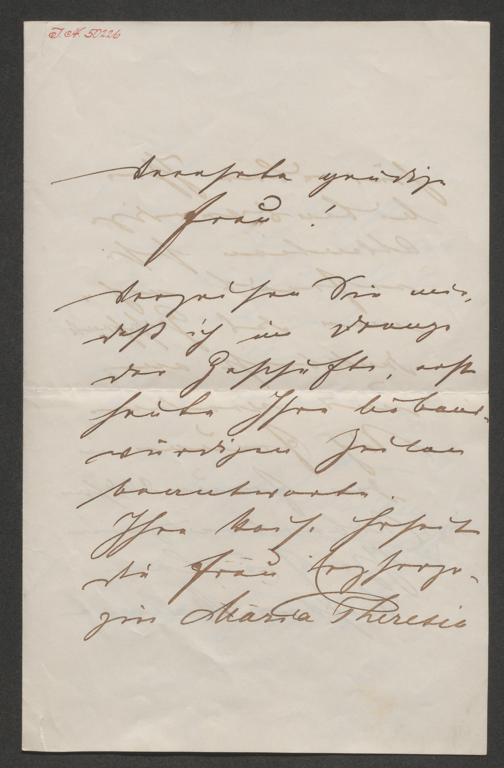 I.N. 50226
Verehrte gnädige
Frau!
Verzeihen Sie mir,
daß ich im Drange
der Geschäfte, erst
heute Ihre liebens-
würdigen Zeilen
beantworte.
Ihre kais. Hoheit
die Frau Erzherzo-
gin Maria Theresia